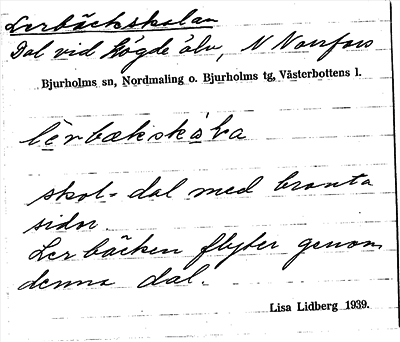 Lerbäckskolan
Dal vid Lögde älv, N Norrfors
Bjurholms sn, Nordmaling o. Bjurholms tg, Västerbottens l.
lèrbækskòla
skol = dal med branta
sidor.
Lerbäcken flyter genom
denna dal.
Lisa Lidberg 1939.